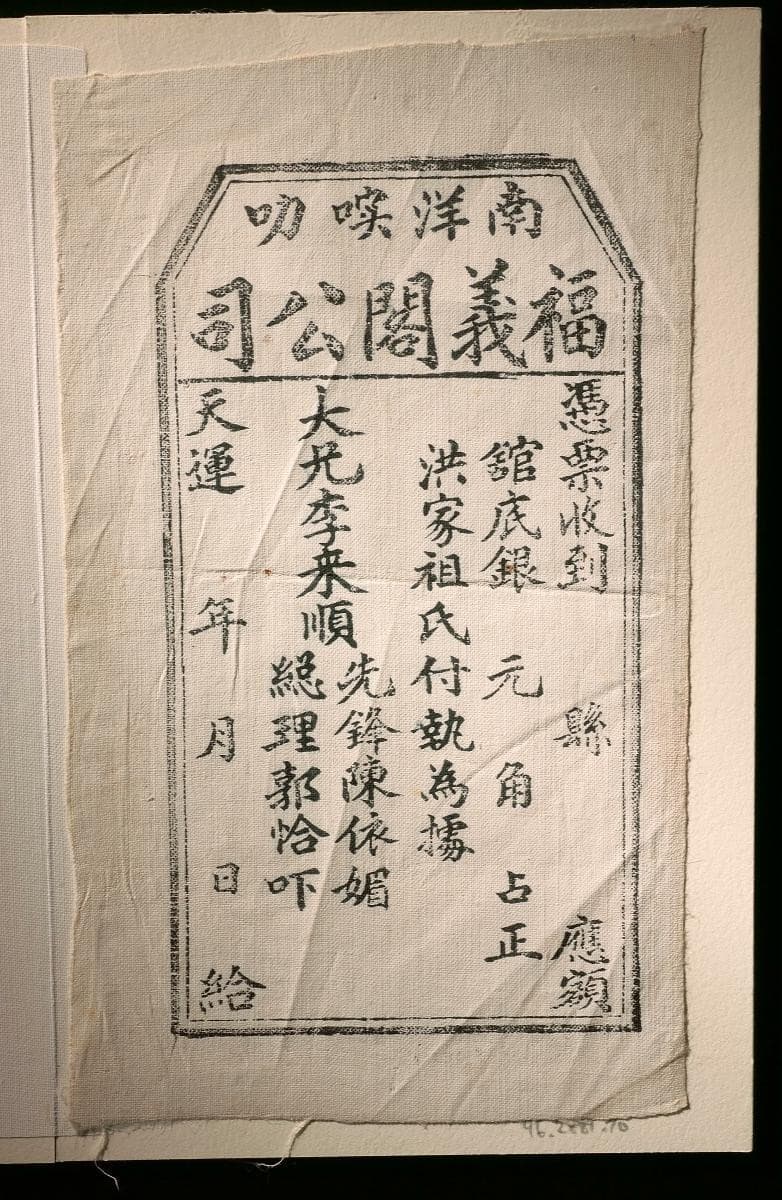 南洋㗝叻
福義閣公司
憑票收到 縣 應額
舘底銀 元 角 占正
洪家祖氏付執為據
大兄李来順
先鋒陳依媚
総理郭恰吓
天運 年 月 日 給